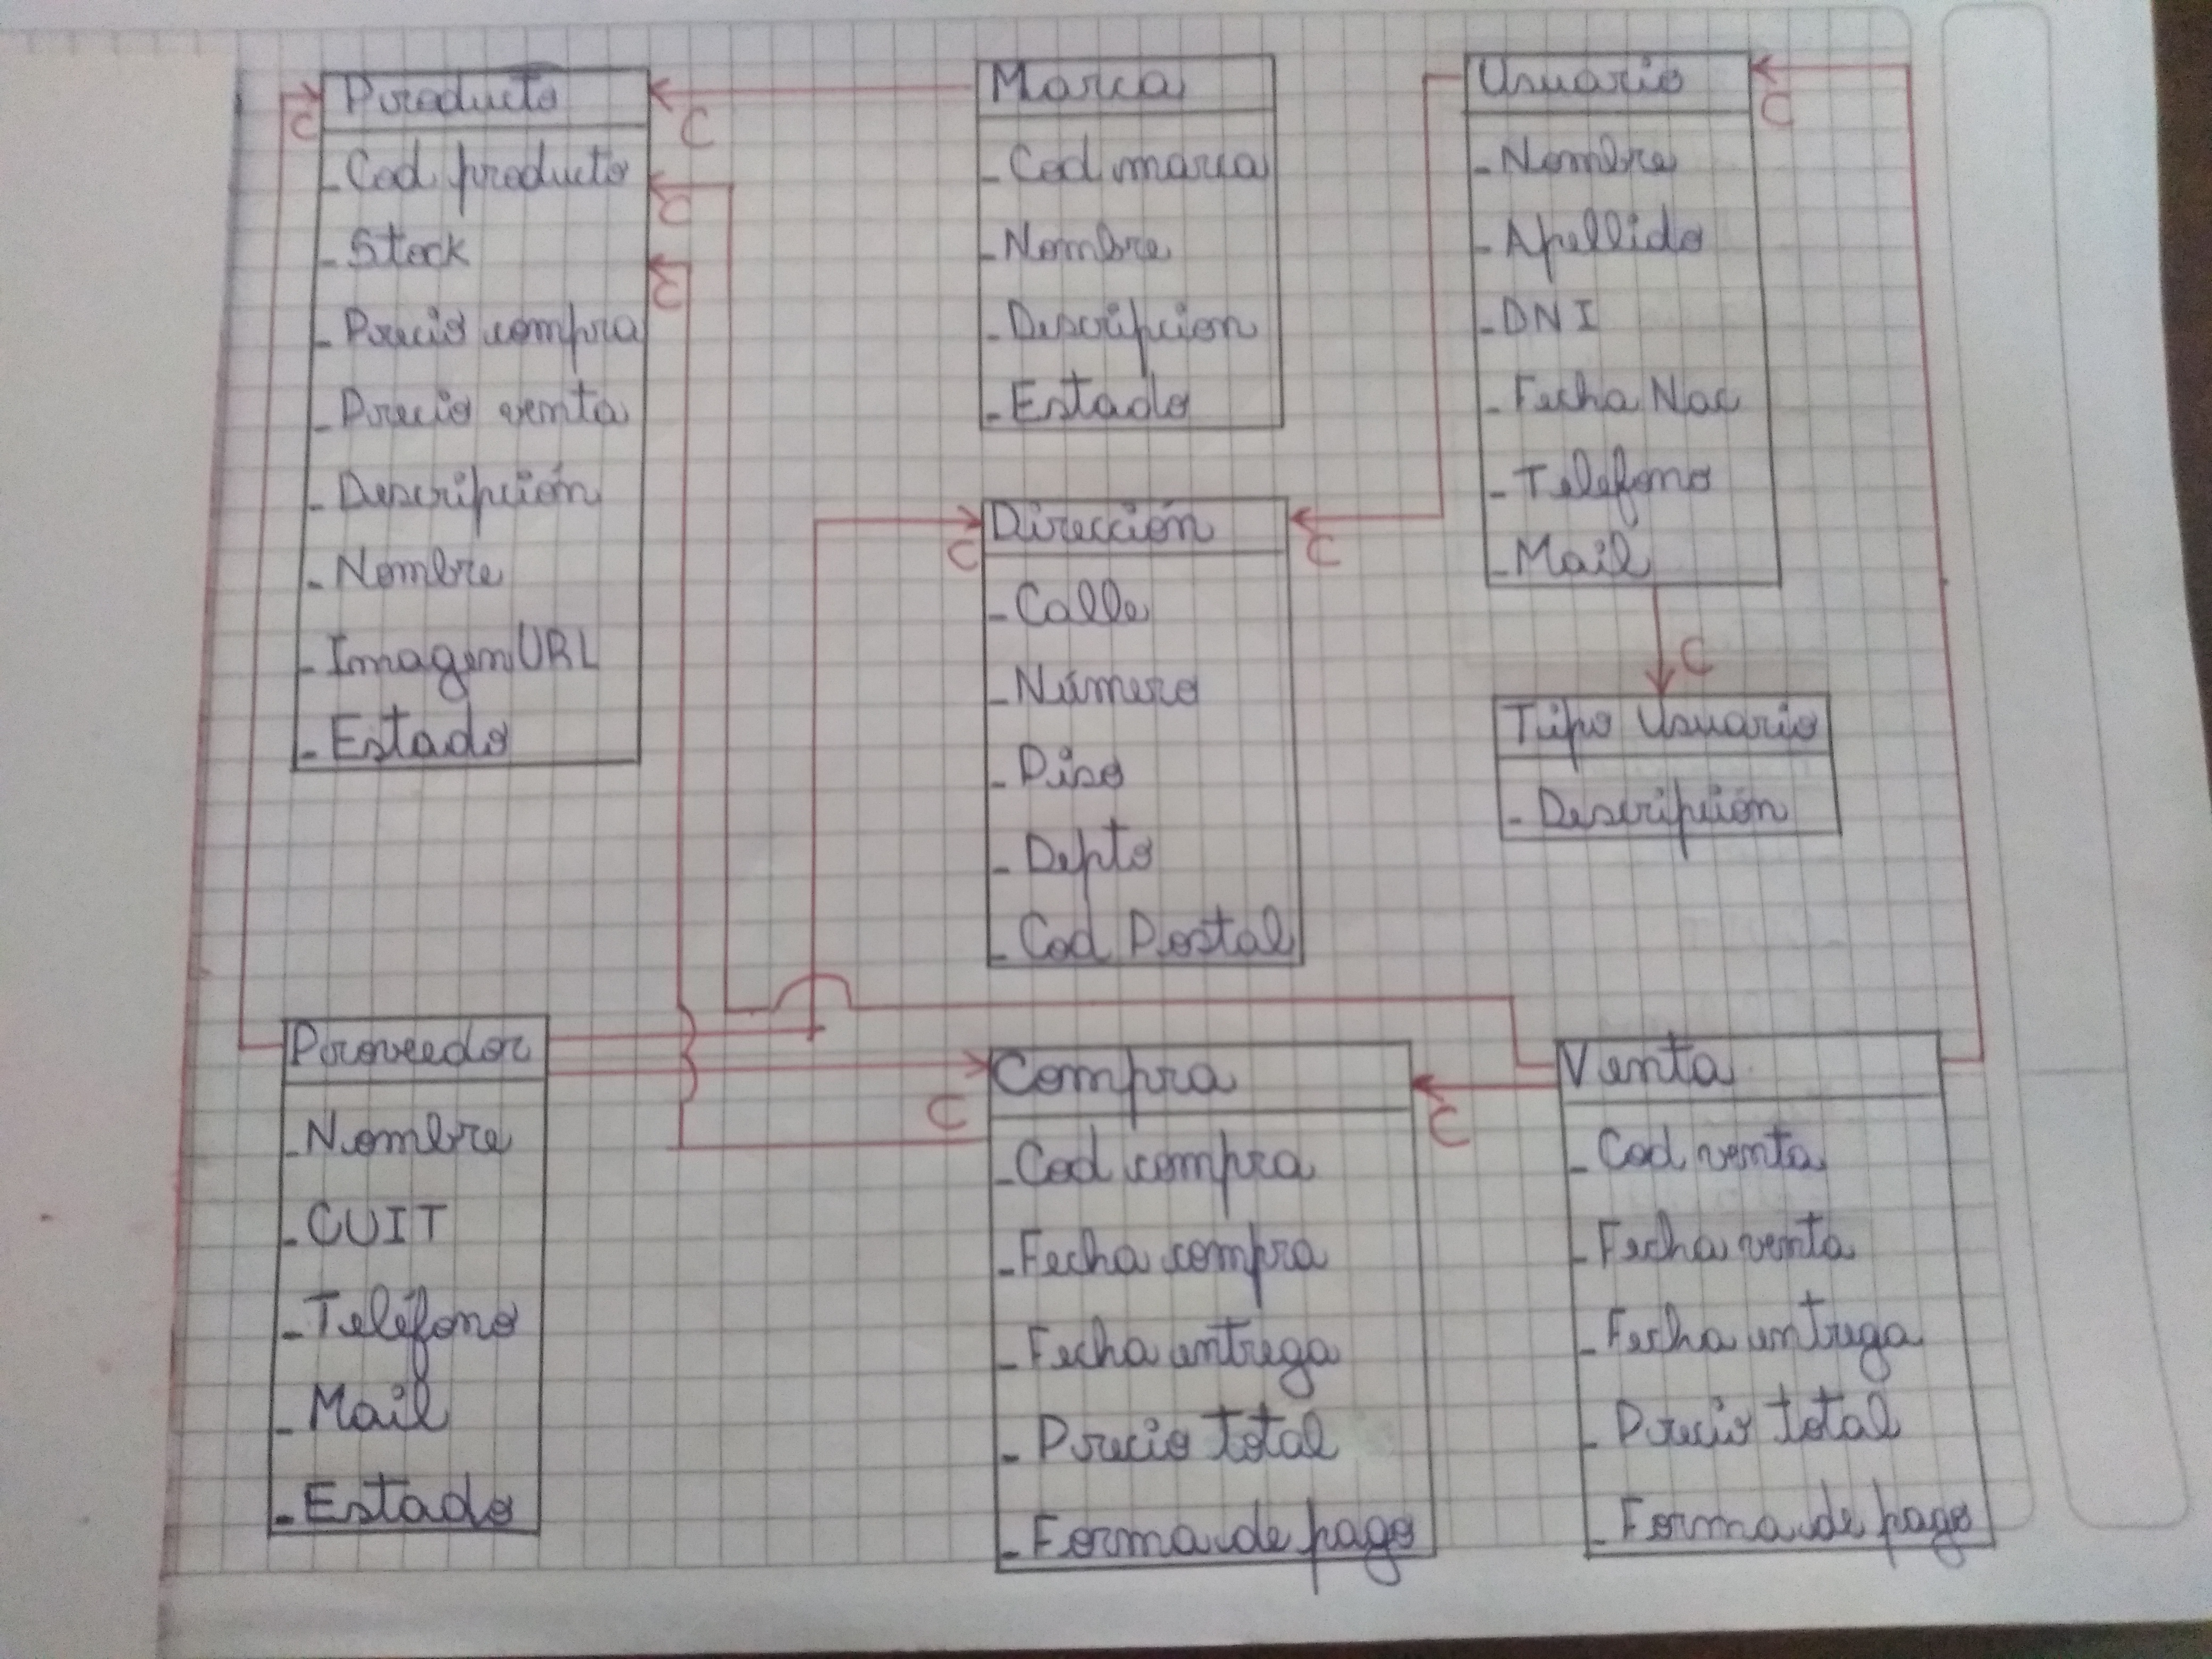 Producto
C
- Cod producto
- Stock
- Precio compra
- Precio venta
- Descripción
- Nombre
- ImagenURL
- Estado
C
C
C
Marca
- Cod marca
- Nombre
- Descripcion
- Estado
Usuario
C
- Nombre
- Apellido
- DNI
- Fecha Nac
- Telefono
- Mail
C
Tipo Usuario
- Descripción
Dirección
C
C
- Calle
- Número
- Piso
- Depto
- Cod Postal
Proveedor
- Nombre
- CUIT
- Teléfono
- Mail
- Estado
Compra
C
- Cod compra
- Fecha compra
- Fecha entrega
- Precio total
- Forma de pago
C
Venta
- Cod venta
- Fecha venta
- Fecha entrega
- Precio total
- Forma de pago